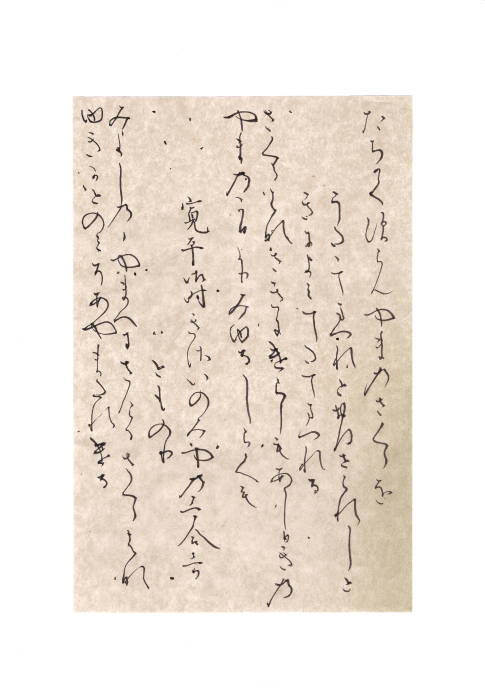 たちかくすらんやまのさくらを
うたたてまつれとおほせられしと
きによみてたてまつれる
さくらはなさきにけらしもあしひきの
やまのかひよりみゆるしらくも
寛平御時きさいのみやの哥合哥
とものり
みよしのゝやまへにさけるさくらはな
ゆきかとのみそあやまたれける